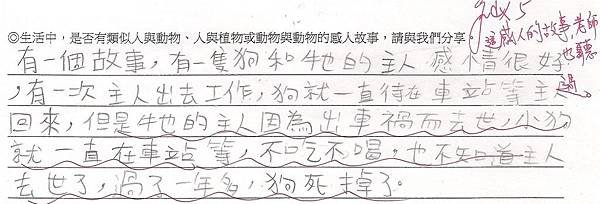 ◎生活中，是否有類似人與動物、人與植物或動物與動物的感人故事，請與我們分享。
這感人的故事，老師也聽過。
有一個故事，有一隻狗和牠的主人感情很好
，有一次主人出去工作，狗就一直待在車站等主人
回來，但是牠的主人因為出車禍而去世，小狗
就一直在車站等，不吃不喝。也不知道主人
去世了，過了一年多，狗死掉了。